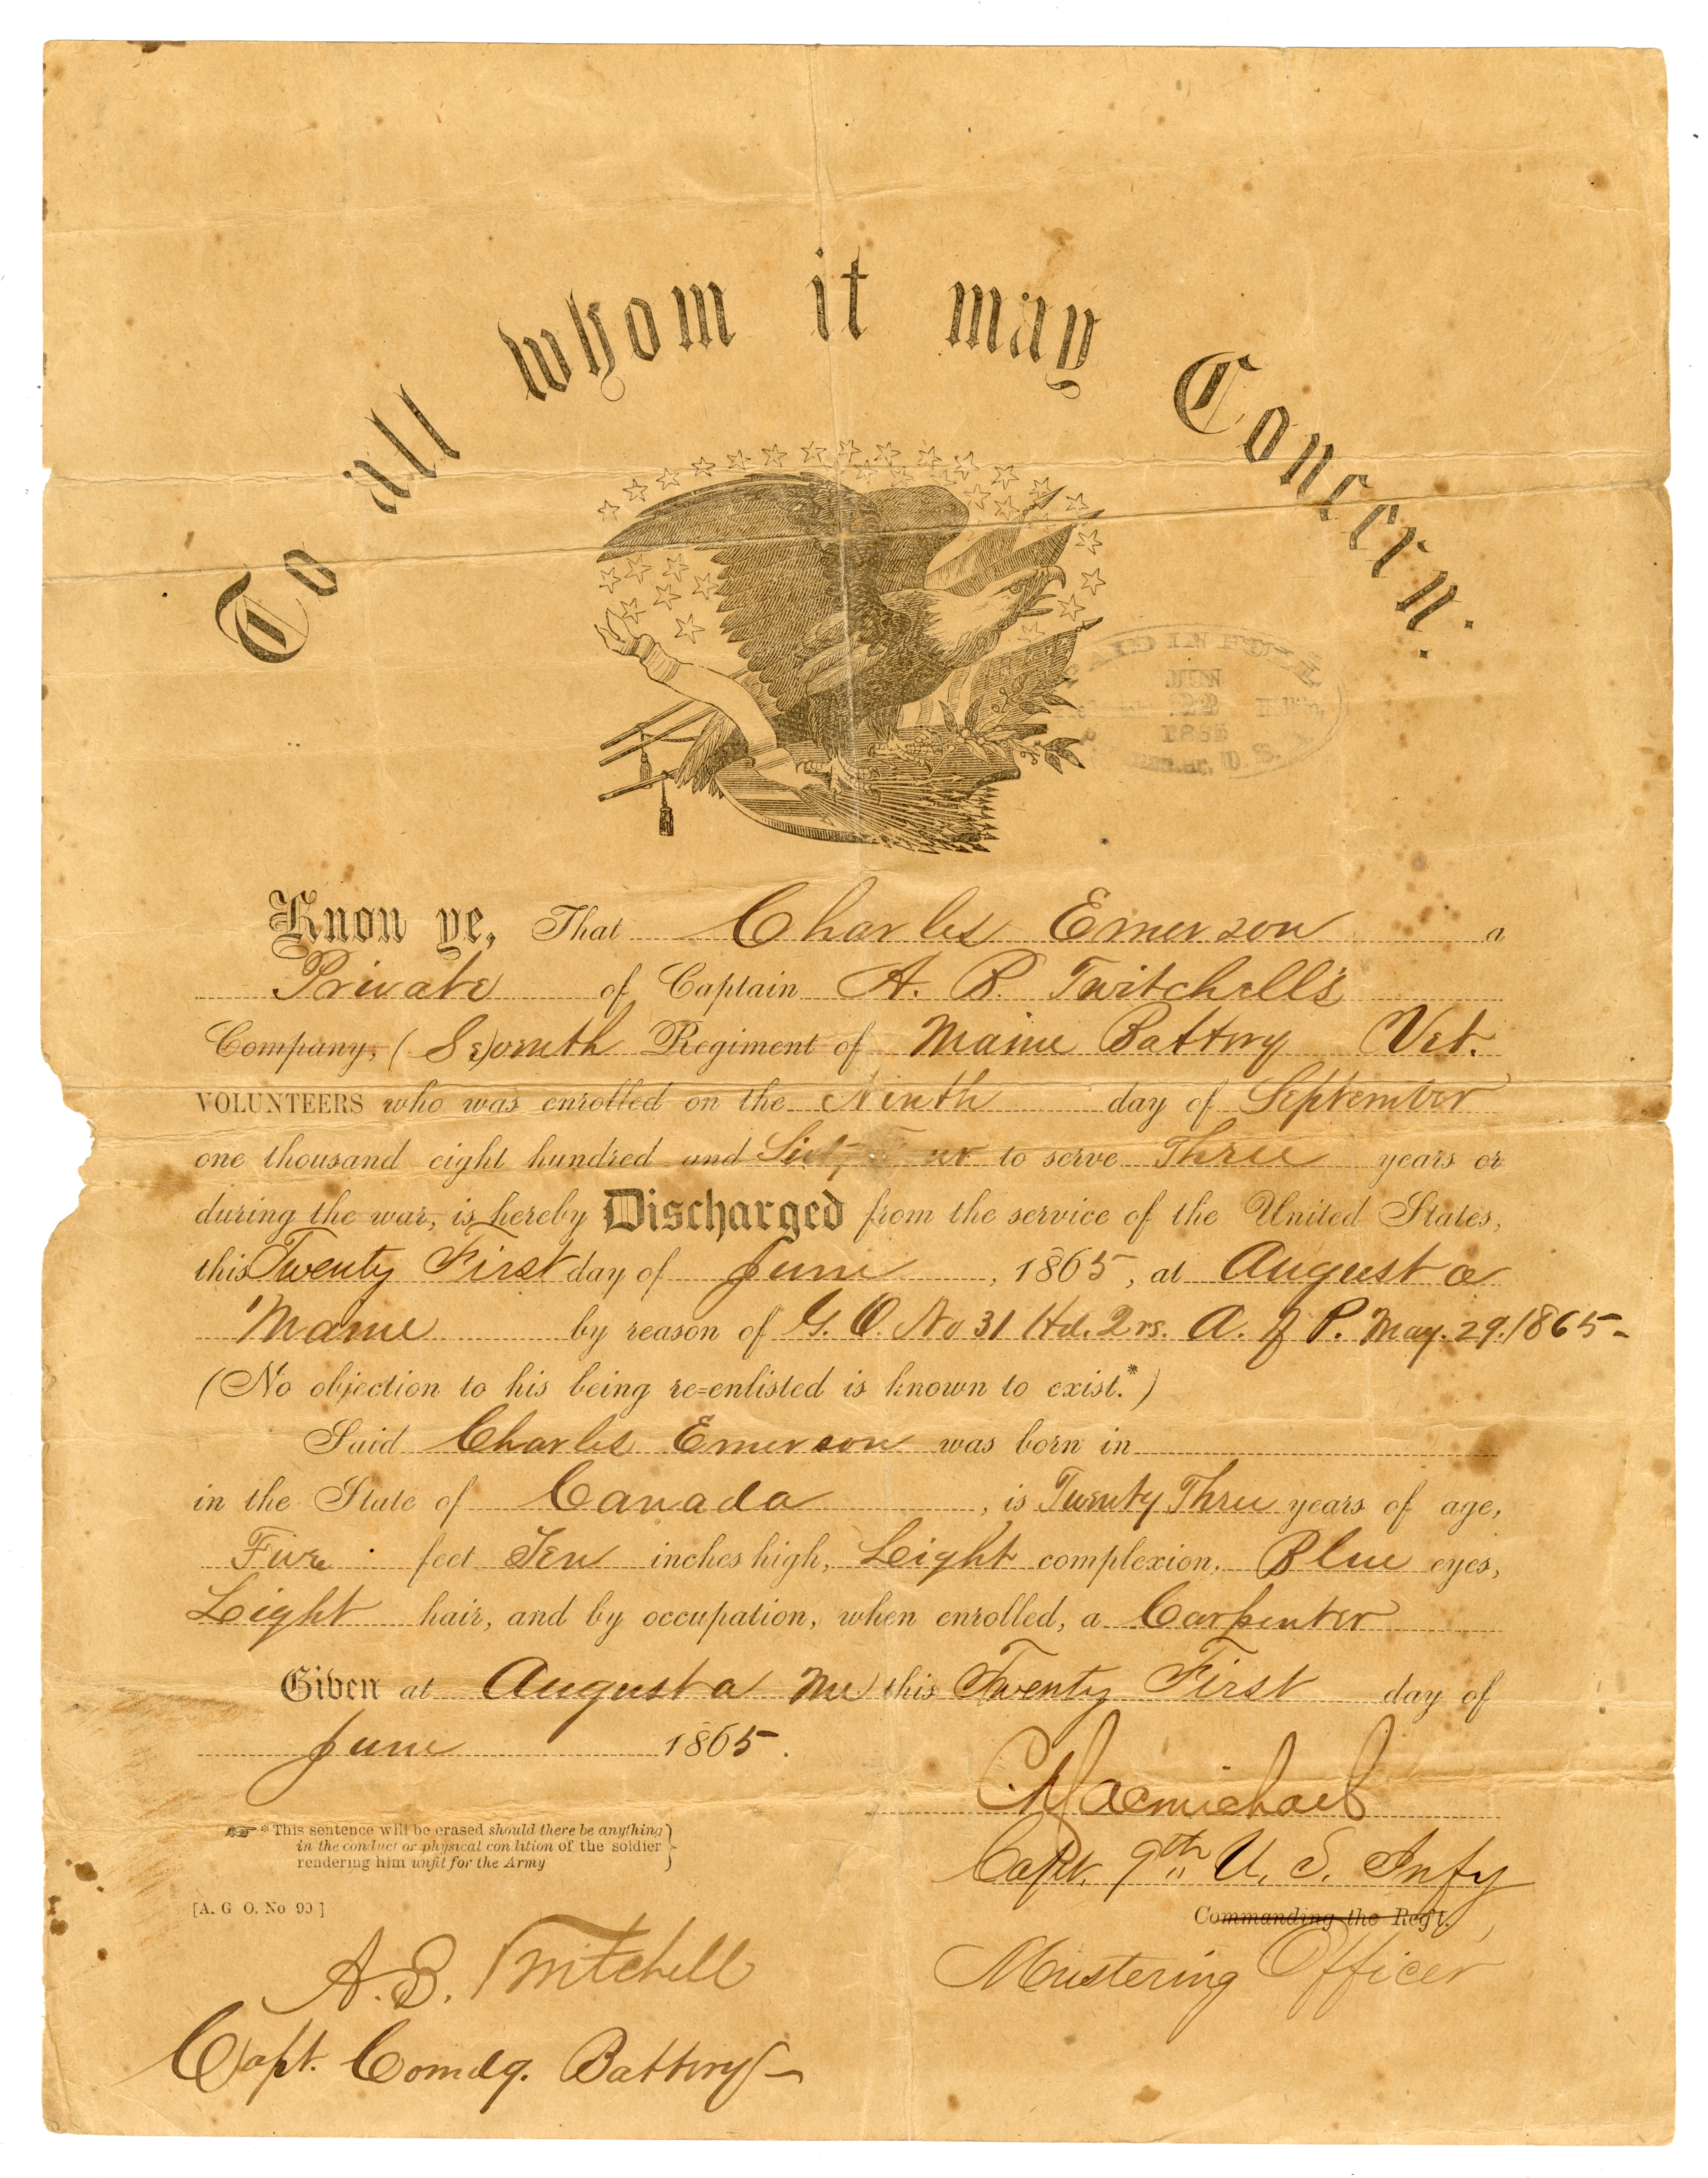 To all whom it may Concern.
PAID IN FULL
JUN
22
1865
U. S. A.
Know ye, That Charles Emerson a
Private of Captain A. B. Twitchell's
Company, (Seventh) Regiment of Maine Battery Vet.
VOLUNTEERS who was enrolled on the Ninth day of September
one thousand eight hundred and Sixty Four to serve Three years or
during the war, is hereby Discharged from the service of the United States,
this Twenty First day of June, 1865, at Augusta
Maine by reason of G. O. No 31 Hd. Qrs. A. of P. May. 29. 1865-
(No objection to his being re-enlisted is known to exist.*)
Said Charles Emerson was born in
in the State of Canada, is Twenty Three years of age,
Five feet Ten inches high, Light complexion, Blue eyes,
Light hair, and by occupation, when enrolled, a Carpenter
Given at Augusta Me this Twenty First day of
June 1865.
Macmichael
*This sentence will be erased should there be anything
in the conduct or physical condition of the soldier
rendering him unfit for the Army
Capt. 9th U. S. Infy
[A. G. O. No 99]
Commanding the Reg't.
A. B. Twitchell
Mustering Officer
Capt. Comdg. Battery-